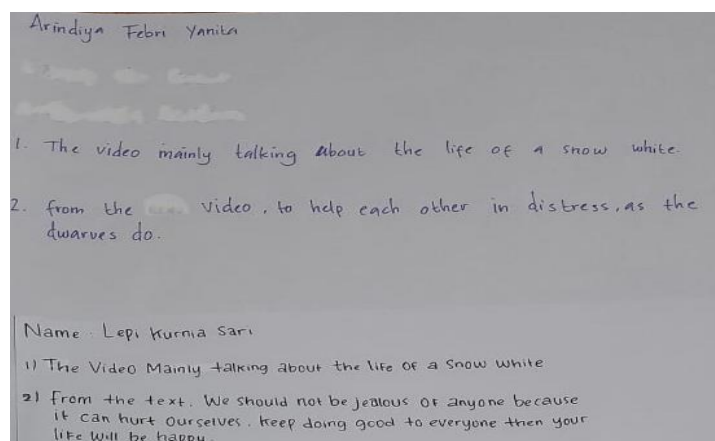 Arindiya Febri Yanita
1. The video mainly talking about the life of a snow white.
2. from the video, to help each other in distress, as the
dwarves do.
Name : Lepi Kurnia Sari
1) The Video Mainly talking about the life of a Snow White
2) From the text. We should not be jealous of anyone because
it can hurt ourselves. Keep doing good to everyone then your
life will be happy.